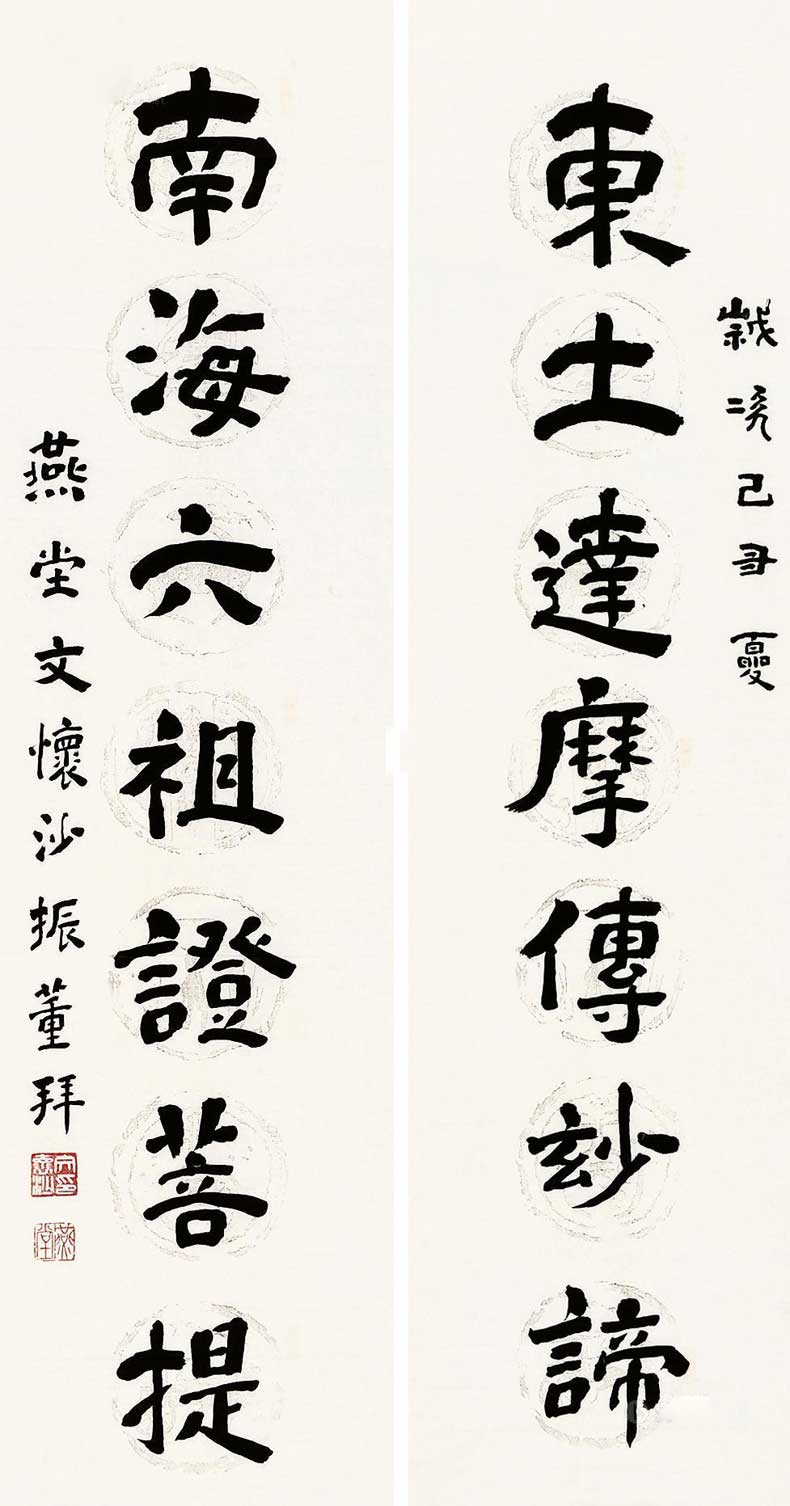 歲次己丑夏
東土達摩傳玅諦
南海六祖證菩提
燕堂文懷沙振董拜
燕堂